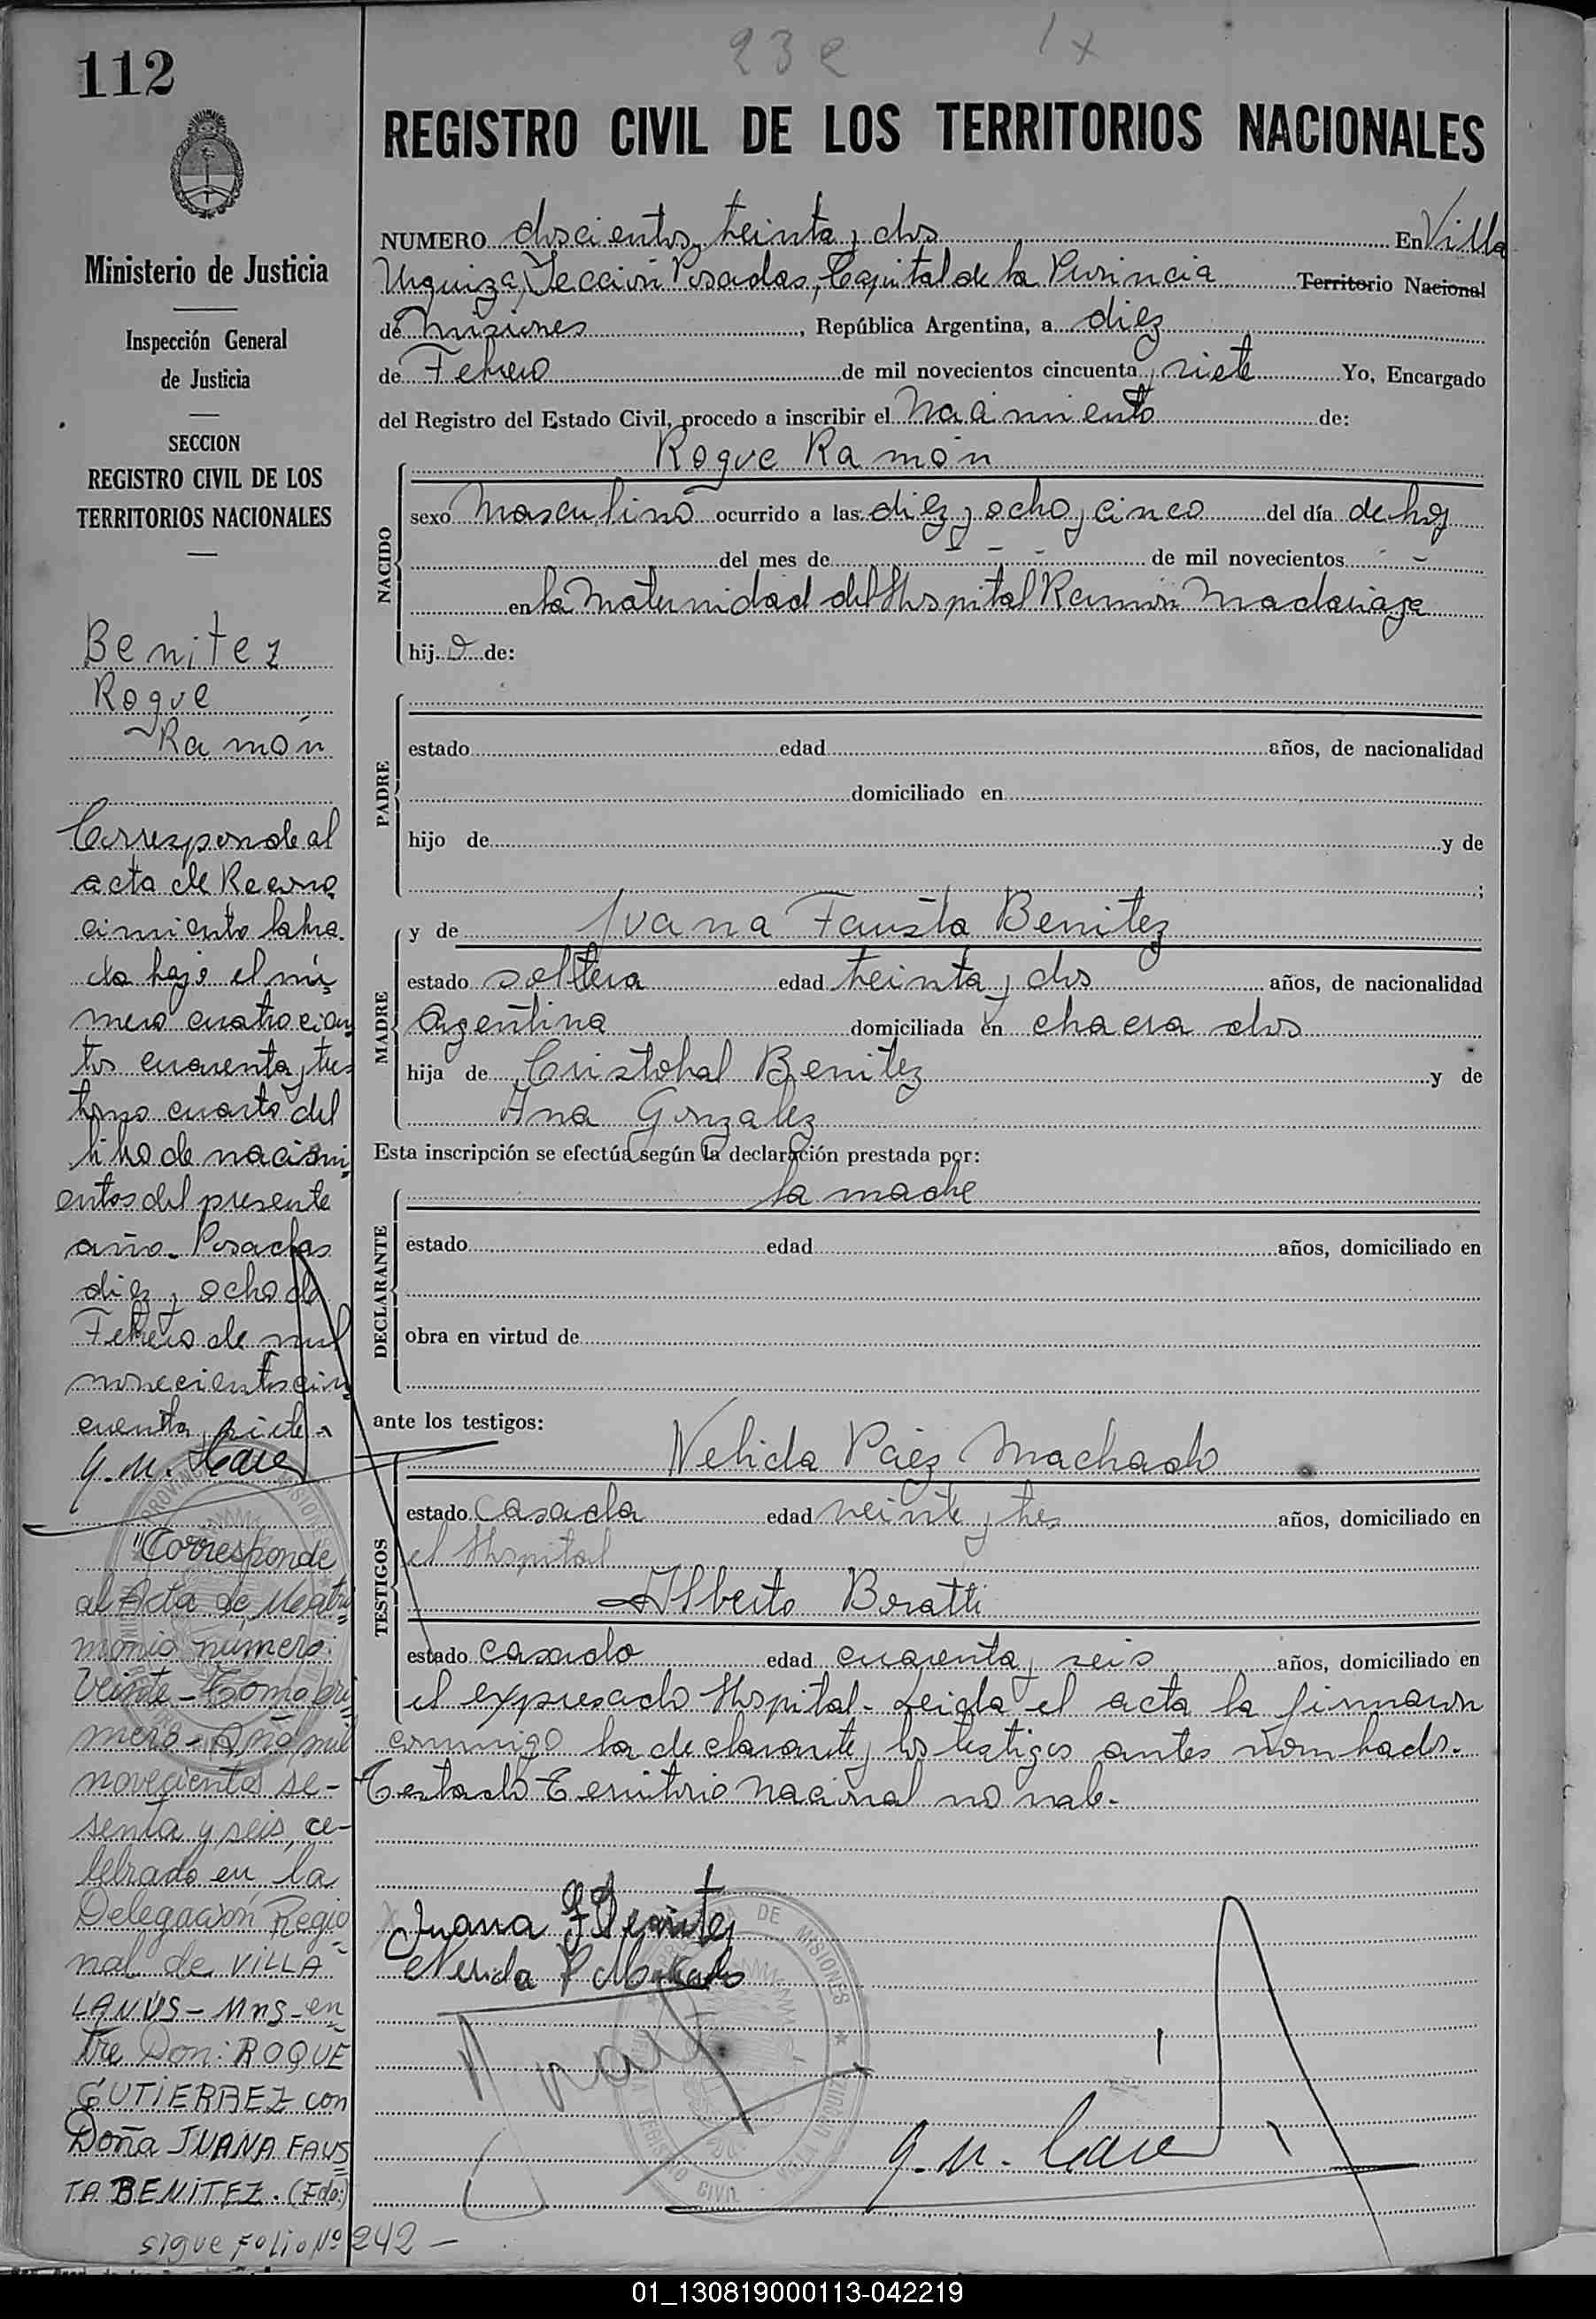 23e 1x
112
Ministerio de Justicia
Inspección General
de Justicia
SECCION
REGISTRO CIVIL DE LOS
TERRITORIOS NACIONALES
Benitez
Roque
Ramón
Corresponde al
acta de Recono
cimiento labra
do bajo el nú
mero cuatrocien
tos cuarenta y tres
tomo cuarto del
libro de nacimi
entos del presente
año. Posadas
diez y ocho de
Febrero de mil
novecientos cin
cuenta y siete.
"Corresponde
al Acta de Matri
monio número:
Veinte - Tomo pri
mero - Año mil
novecientos se-
senta y seis, ce-
lebrado en la
Delegación Regio
nal de VILLA
LANÚS - Mns - en
tre Don: ROQUE
GUTIERREZ con
Doña JUANA FAUS
TA BENITEZ. (Fdo:)
sigue Folio Nº 242 -
REGISTRO CIVIL DE LOS TERRITORIOS NACIONALES
NUMERO doscientos treinta y dos En Villa
Urquiza, Sección Posadas, Capital de la Provincia Territorio Nacional
de Misiones, República Argentina, a diez
de Febrero de mil novecientos cincuenta y siete Yo, Encargado
del Registro del Estado Civil, procedo a inscribir el Nacimiento de:
Roque Ramón
NACIDO
sexo Masculino ocurrido a las diez y ocho y cinco del día de hoy
del mes de - - - de mil novecientos - -
en la Maternidad del Hospital Ramón Madariaga
hijo de:
PADRE
estado edad años, de nacionalidad
domiciliado en
hijo de y de
;
MADRE
y de Juana Fausta Benitez
estado soltera edad treinta y dos años, de nacionalidad
Argentina domiciliada en chacra dos
hija de Cristobal Benitez y de
Ana Gonzalez
Esta inscripción se efectúa según la declaración prestada por:
DECLARANTE
la madre
estado edad años, domiciliado en
obra en virtud de
ante los testigos:
TESTIGOS
Nelida Páez Machado
estado casada edad veinte y tres años, domiciliado en
el Hospital
Alberto Boratti
estado casado edad cuarenta y seis años, domiciliado en
el expresado Hospital. Leida el acta la firmaron
conmigo la declarante y los testigos antes nombrados.
Testado Territorio Nacional no vale.
Juana F Benitez
01_130819000113-042219